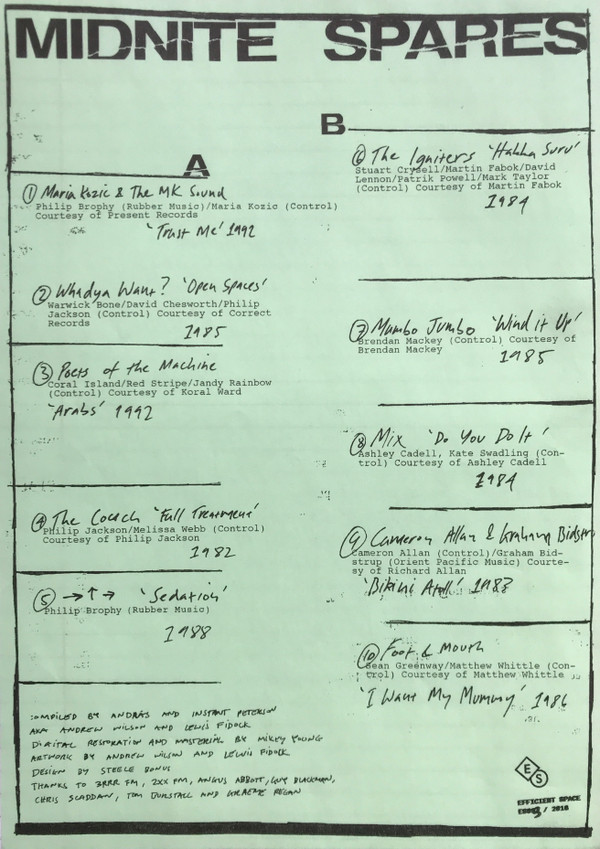 MIDNITE SPARES
A
① Maria Kozic & The MK Sound
Philip Brophy (Rubber Music)/Maria Kozic (Control)
Courtesy of Present Records
'Trust Me' 1992
② Whadya Want? 'Open Spaces'
Warwick Bone/David Chesworth/Philip
Jackson (Control) Courtesy of Correct
Records
1985
③ Poets of the Machine
Coral Island/Red Stripe/Jandy Rainbow
(Control) Courtesy of Koral Ward
'Arabs' 1992
④ The Couch 'Full Treatment'
Philip Jackson/Melissa Webb (Control)
Courtesy of Philip Jackson
1982
⑤ →↑→ 'Sedation'
Philip Brophy (Rubber Music)
1988
COMPILED BY ANDRÁS AND INSTANT PETERSON
AKA ANDREW WILSON AND LEWIS FIDOCK
DIGITAL RESTORATION AND MASTERING BY MIKEY YOUNG
ARTWORK BY ANDREW WILSON AND LEWIS FIDOCK
DESIGN BY STEELE BONUS
THANKS TO 3RRR FM, 2XX FM, ANGUS ABBOTT, GUY BLACKMAN,
CHRIS SCADDAN, TIM DUNSTALL AND GRAEME REGAN
B
⑥ The Igniters 'Hakka Suru'
Stuart Crysell/Martin Fabok/David
Lennon/Patrik Powell/Mark Taylor
(Control) Courtesy of Martin Fabok
1984
⑦ Mumbo Jumbo 'Wind it Up'
Brendan Mackey (Control) Courtesy of
Brendan Mackey
1985
⑧ Mix 'Do You Do It'
Ashley Cadell, Kate Swadling (Con-
trol) Courtesy of Ashley Cadell
1984
⑨ Cameron Allan & Graham Bidstrup
Cameron Allan (Control)/Graham Bid-
strup (Orient Pacific Music) Courte-
sy of Richard Allan
'Bikini Atoll' 1983
⑩ Foot & Mouth
Sean Greenway/Matthew Whittle (Con-
trol) Courtesy of Matthew Whittle
'I Want My Mummy' 1986
E S
EFFICIENT SPACE
/ 2016